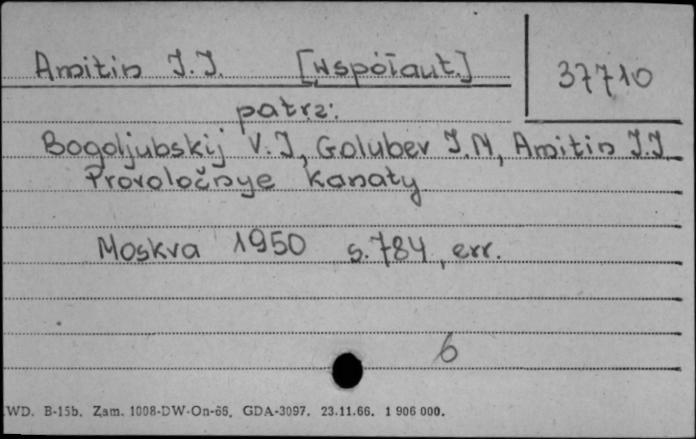 Amitin I.I. [współaut.] 37710
patrz:
Bogoljubskij V.I, Golubev I.N, Amitin I.I.
Provoločnye kanaty
Moskva 1950 s.784, err.
6
WD. B-15b. Zam. 1008-DW-On-66. GDA-3097. 23.11.66. 1 906 000.